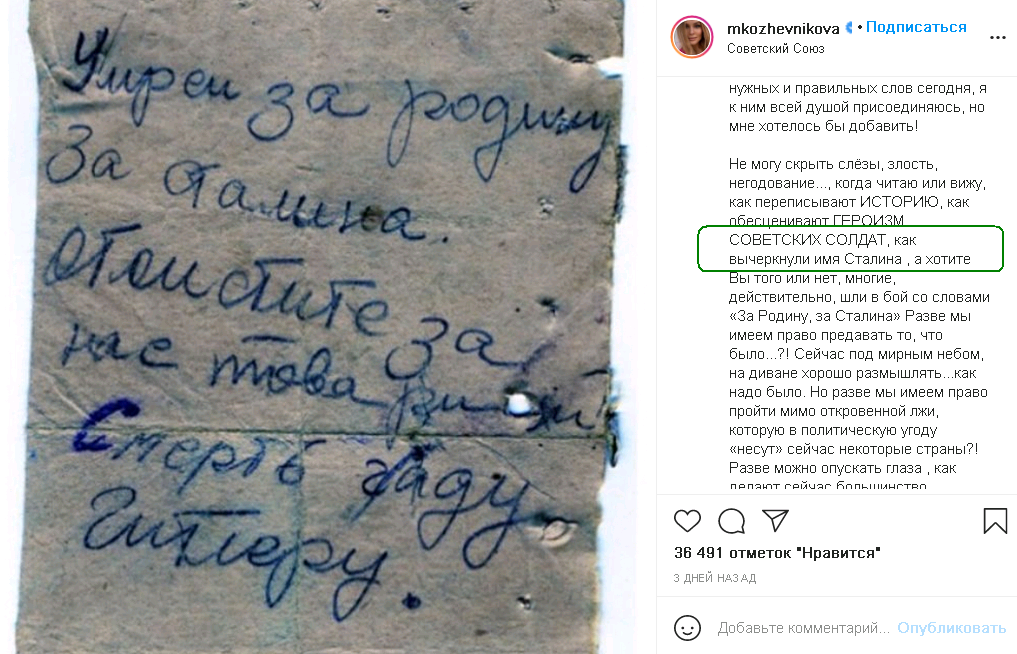 Умрем за родину
За Сталина.
Отомстите за
нас товарищи
Смерть гаду
Гитлеру.
mkozhevnikova • Подписаться
Советский Союз
нужных и правильных слов сегодня, я
к ним всей душой присоединяюсь, но
мне хотелось бы добавить!
Не могу скрыть слёзы, злость,
негодование..., когда читаю или вижу,
как переписывают ИСТОРИЮ, как
обесценивают ГЕРОИЗМ
СОВЕТСКИХ СОЛДАТ, как
вычеркнули имя Сталина , а хотите
Вы того или нет, многие,
действительно, шли в бой со словами
«За Родину, за Сталина» Разве мы
имеем право предавать то, что
было...?! Сейчас под мирным небом,
на диване хорошо размышлять...как
надо было. Но разве мы имеем право
пройти мимо откровенной лжи,
которую в политическую угоду
«несут» сейчас некоторые страны?!
Разве можно опускать глаза , как
делают сейчас большинство
36 491 отметок "Нравится"
3 ДНЕЙ НАЗАД
Добавьте комментарий... Опубликовать